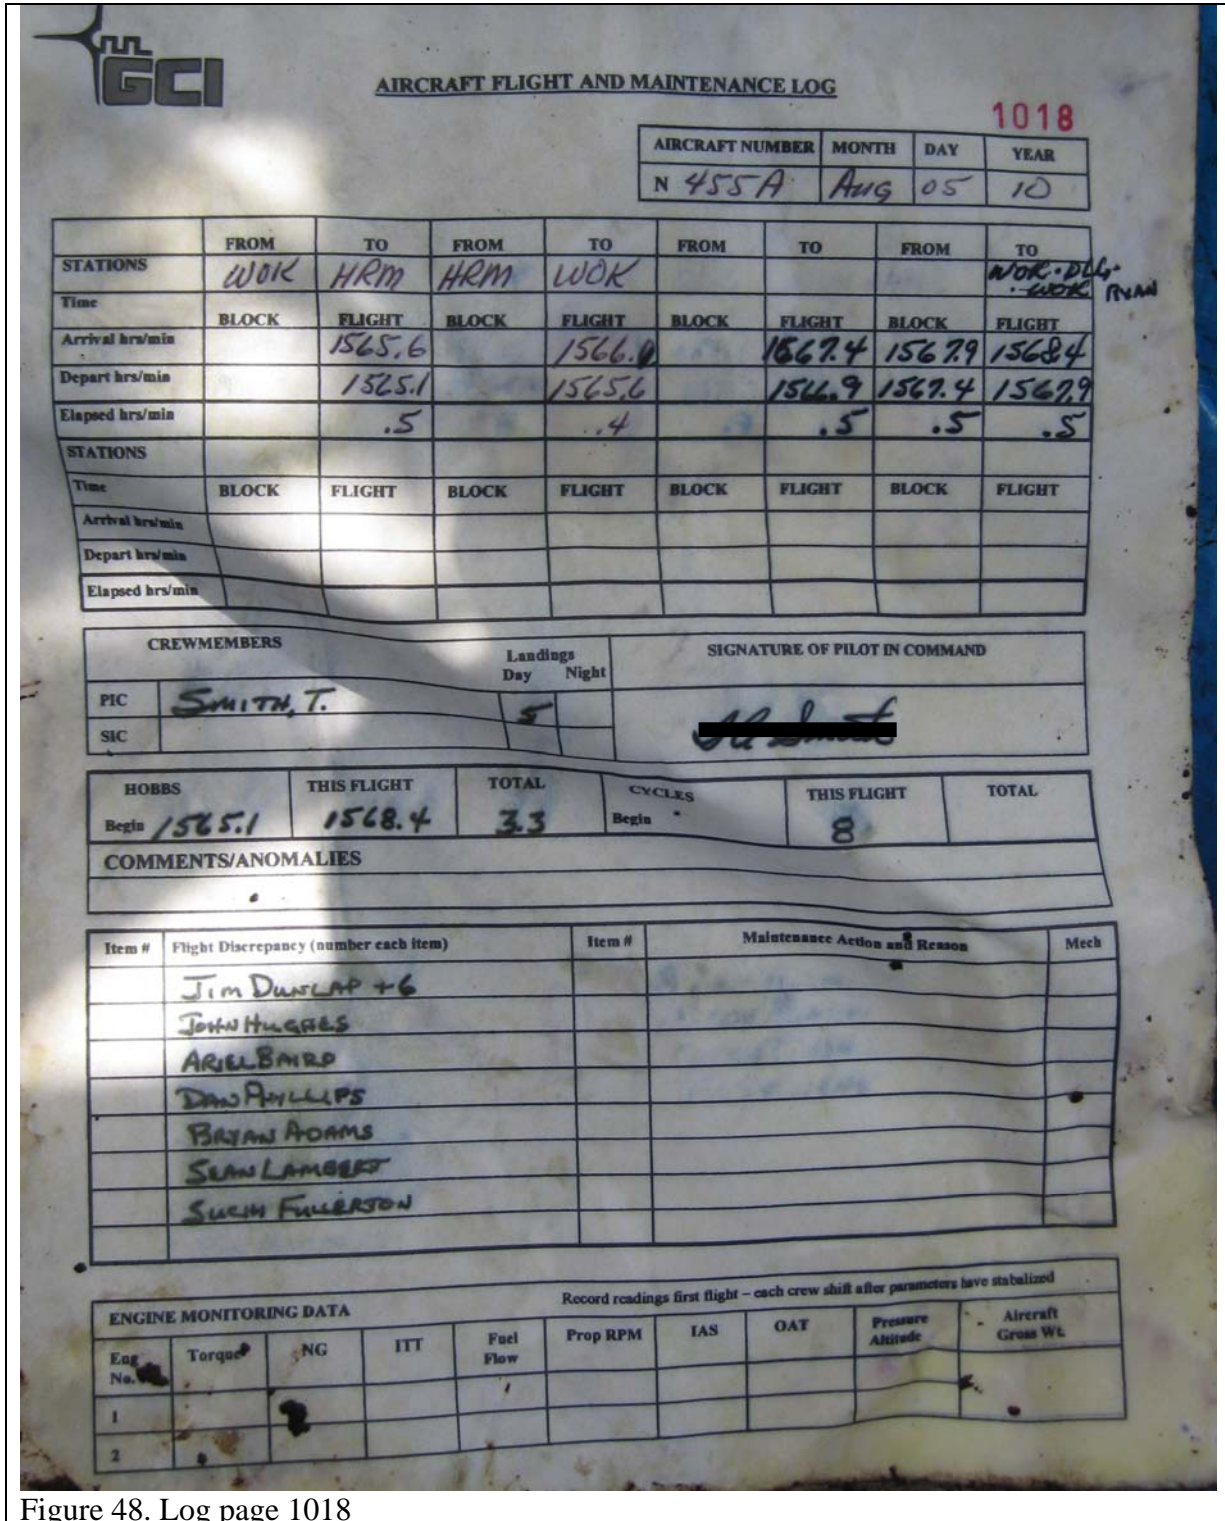 GCI
AIRCRAFT FLIGHT AND MAINTENANCE LOG
1018
AIRCRAFT NUMBER MONTH DAY YEAR
N 455A Aug 05 10
FROM TO FROM TO FROM TO FROM TO
STATIONS WOK HRM HRM WOK WOK - DLG -
WOK RYAN
Time
BLOCK FLIGHT BLOCK FLIGHT BLOCK FLIGHT BLOCK FLIGHT
Arrival hrs/min 1565.6 1566. 1567.4 1567.9 1568.4
Depart hrs/min 1565.1 1565.6 1566.9 1567.4 1567.9
Elapsed hrs/min .5 .4 .5 .5 .5
STATIONS
Time BLOCK FLIGHT BLOCK FLIGHT BLOCK FLIGHT BLOCK FLIGHT
Arrival hrs/min
Depart hrs/min
Elapsed hrs/min
CREWMEMBERS Landings SIGNATURE OF PILOT IN COMMAND
Day Night
PIC SMITH, T. 5
SIC
HOBBS THIS FLIGHT TOTAL CYCLES THIS FLIGHT TOTAL
Begin 1565.1 1568.4 3.3 Begin 8
COMMENTS/ANOMALIES
Item # Flight Discrepancy (number each item) Item # Maintenance Action and Reason Mech
JIM DUNLAP +6
JOHN HUGHES
ARIEL BAIRD
DAN PHILLIPS
BRYAN ADAMS
SEAN LAMBERT
FULLERTON
ENGINE MONITORING DATA Record readings first flight – each crew shift after parameters have stabalized
Eng No. Torque NG ITT Fuel Flow Prop RPM IAS OAT Pressure Altitude Aircraft Gross Wt.
1
2
Figure 48. Log page 1018